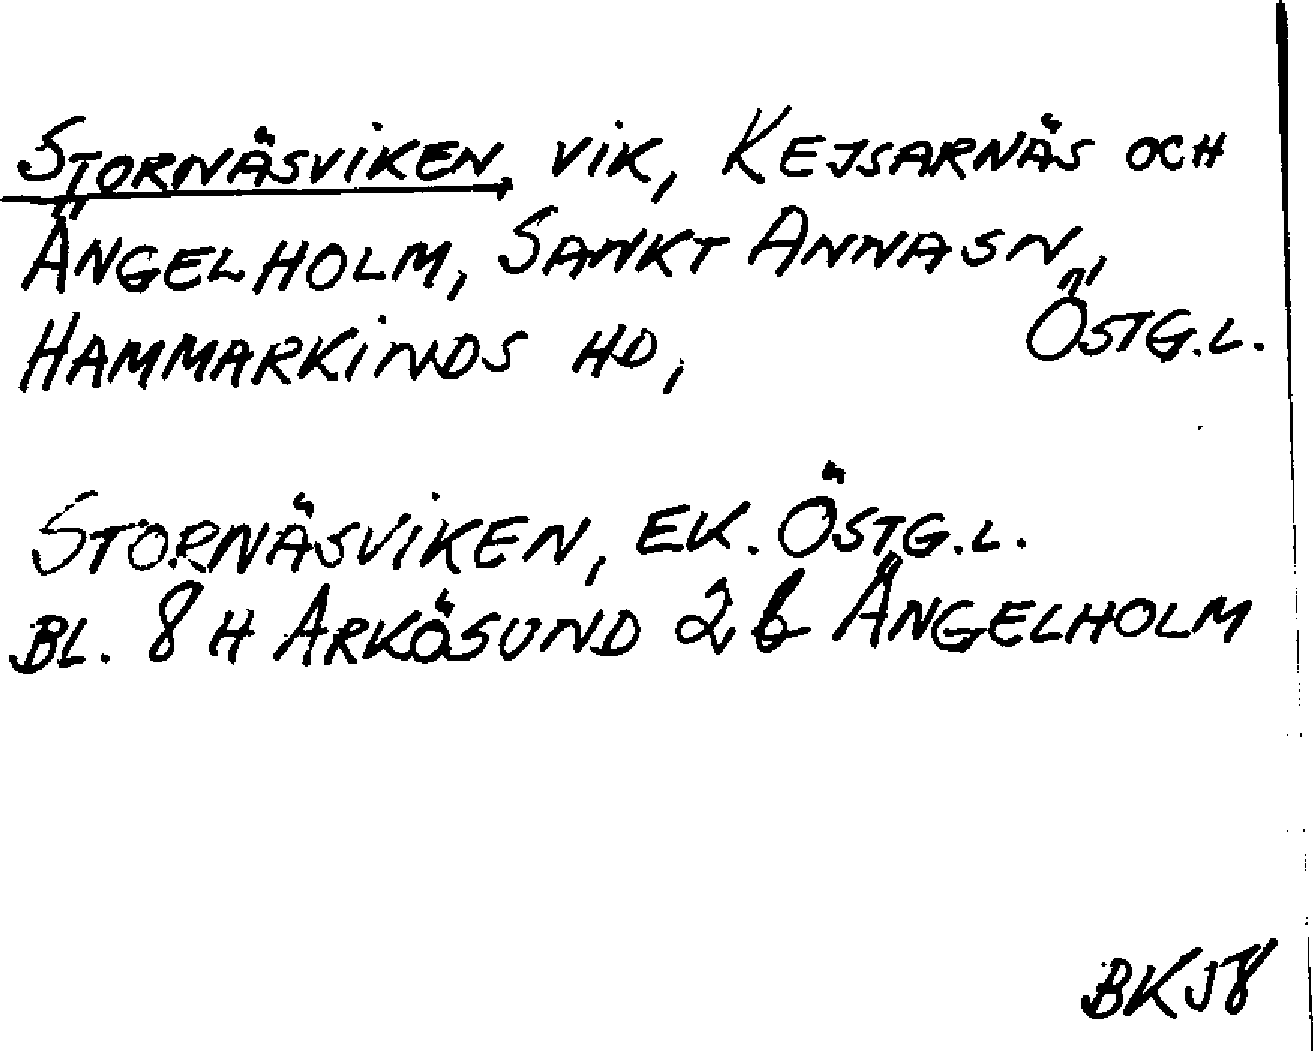 STORNÄSVIKEN, VIK, KEJSARNÄS OCH
ÄNGELHOLM, SANKT ANNA SN,
HAMMARKINDS HD, ÖSTG.L.
STORNÄSVIKEN, EK. ÖSTG.L.
BL. 8 H ARKÖSUND 2 b ÄNGELHOLM